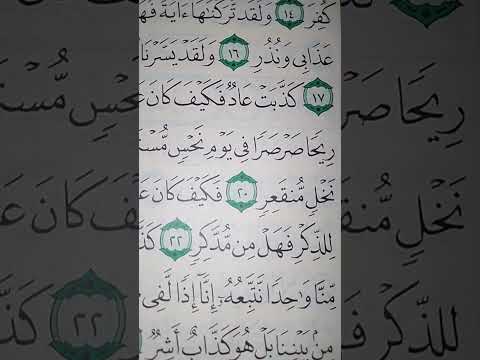 كُفِرَ ١٤ وَلَقَد تَّرَكْنَٰهَآ ءَايَةً فَهَ
عَذَابِى وَنُذُرِ ١٦ وَلَقَدْ يَسَّرْنَا
١٧ كَذَّبَتْ عَادٌ فَكَيْفَ كَانَ عَ
رِيحًا صَرْصَرًا فِى يَوْمِ نَحْسٍ مُّسْتَ
نَخْلٍ مُّنقَعِرٍ ٢٠ فَكَيْفَ كَانَ عَ
لِلذِّكْرِ فَهَلْ مِن مُّدَّكِرٍ ٢٢ كَذَّ
مِّنَّا وَٰحِدًا نَّتَّبِعُهُۥٓ إِنَّآ إِذًا لَّفِى
مِنۢ بَيْنِنَا بَلْ هُوَ كَذَّابٌ أَشِرٌ